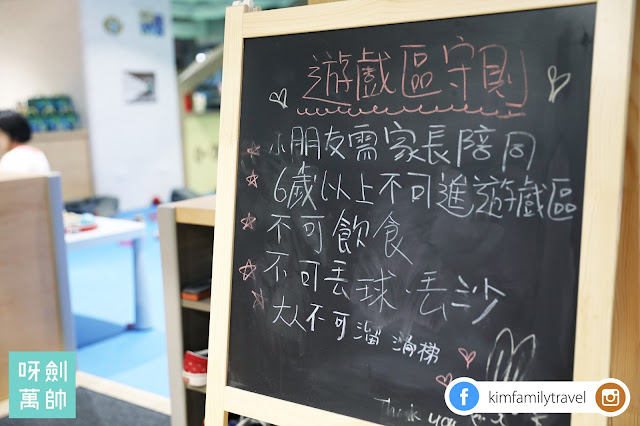 遊戲區守則
小朋友需家長陪同
6歲以上不可進遊戲區
不可飲食
不可丟球、丟沙
大人不可溜滑梯
Thank you
呀劍
萬帥
kimfamilytravel